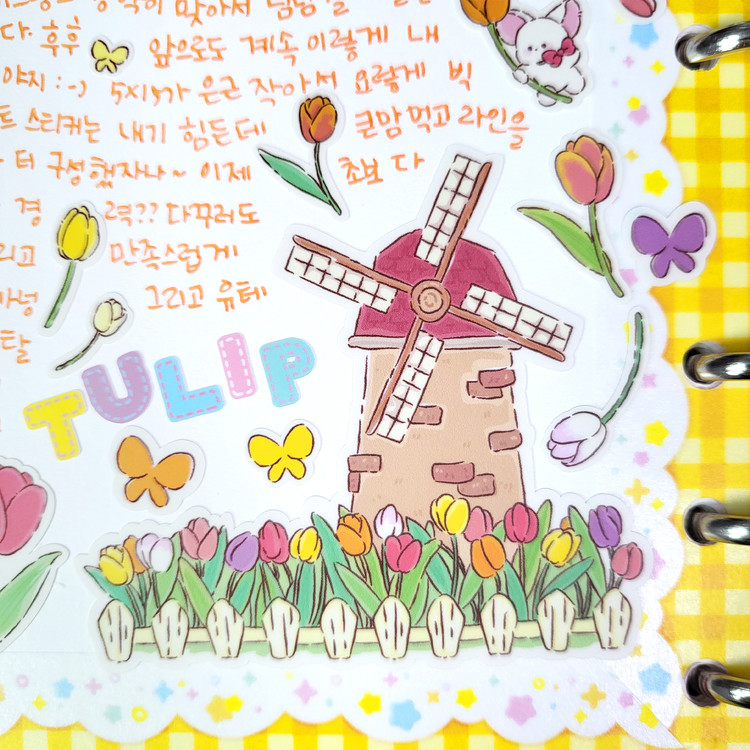 맞아서
다. 후후 앞으로도 계속 이렇게 내
야지 :-) 5x15가 은근 작아서 요렇게 빅
트 스티커는 내기 힘든데 큰맘먹고 라인을
터 구성했자나~ 이제 초보 다
경 력?? 다꾸러도
리고 만족스럽게
그리고 유테
탈
TULIP